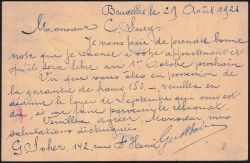 Bruxelles le 29 Août 1921
Monsieur C.
Je vous prie de prendre bonne
note que je renonce à votre appartement et
qu'il sera libre au 1er Octobre prochain
Vu que vous êtes en possession de
la garantie de francs 155 - veuillez en
déduire le loyer de Septembre qui vous est
dû, et me faire parvenir le
Veuillez agréer, Monsieur mes
salutations distinguées
142 rue